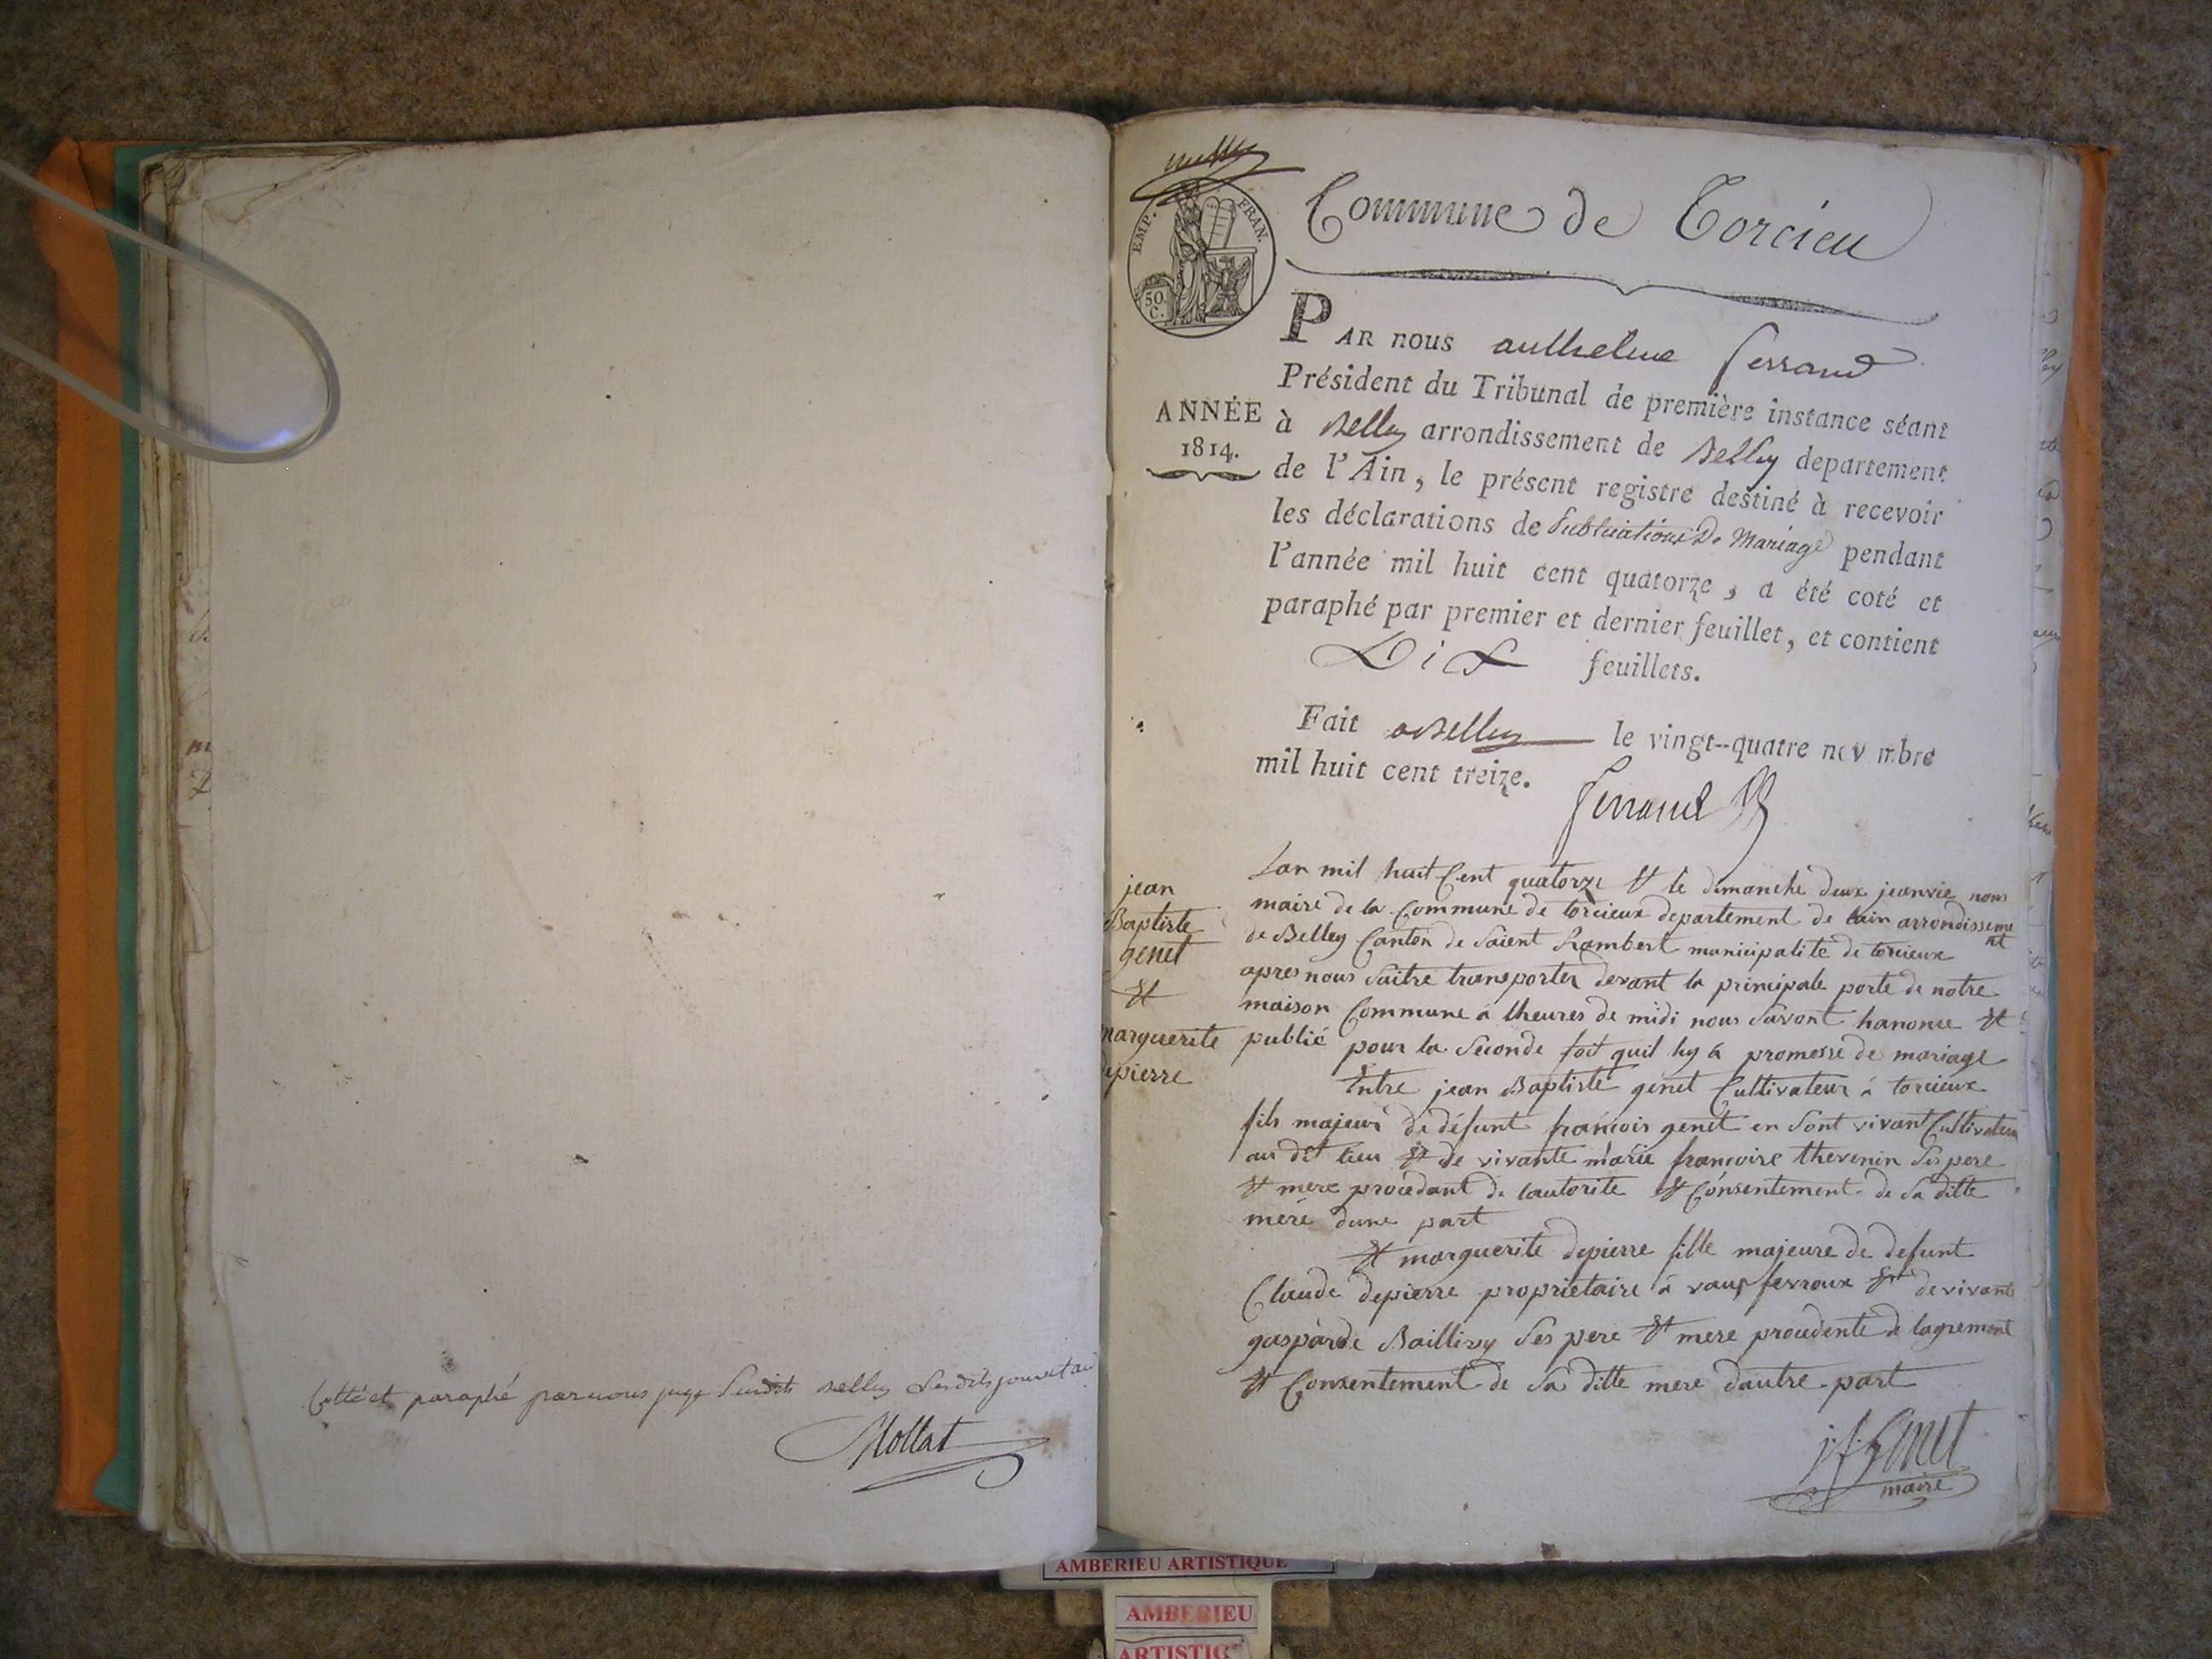 Cotté et paraphé par nous juge Susdit Belley Lesdits jour et an
Mollat
EMP. FRAN.
50.
C.
Commune de Torcieu
PAR nous anthelme ferrand
Président du Tribunal de première instance séant
ANNÉE
1814.
à Belley arrondissement de Belley departement
de l'Ain, le présent registre destiné à recevoir
les déclarations de Publications De Mariage pendant
l'année mil huit cent quatorze, a été coté et
paraphé par premier et dernier feuillet, et contient
Dix feuillets.
Fait a Belley le vingt-quatre nov mbre
mil huit cent treize.
ferrand
jean
Baptiste
genet
Et
marguerite
depierre
Lan mil huit Cent quatorze Et le dimanche deux jeanvie nous
maire de la Commune de torcieux departement de lain arrondisseme
nt
de Belley Canton de Saient Rambert municipalite de torcieux
apres nous Saitre transporter devant la principale porte de notre
maison Commune a lheures de midi nous Savont hanonce Et
publié pour la Seconde foit quil hy a promesse de mariage
Entre jean Baptiste genet Cultivateur a torcieux
fils majeur de défunt françois genet en Sont vivant Cultivateur
au dit lieu Et de vivante marie françoise thevenin Ses pere
Et mere procedant de lautorite Et Consentement de Sa ditte
mere dune part
Et marguerite depierre fille majeure de defunt
Claude depierre proprietaire a vaux fevroux Et de vivante
gasparde Baillivy Ses pere Et mere procedente de lagrement
Et Consentement de Sa ditte mere dautre part
j f Genet
maire
AMBERIEU ARTISTIQUE
AMBERIEU
ARTISTIQ